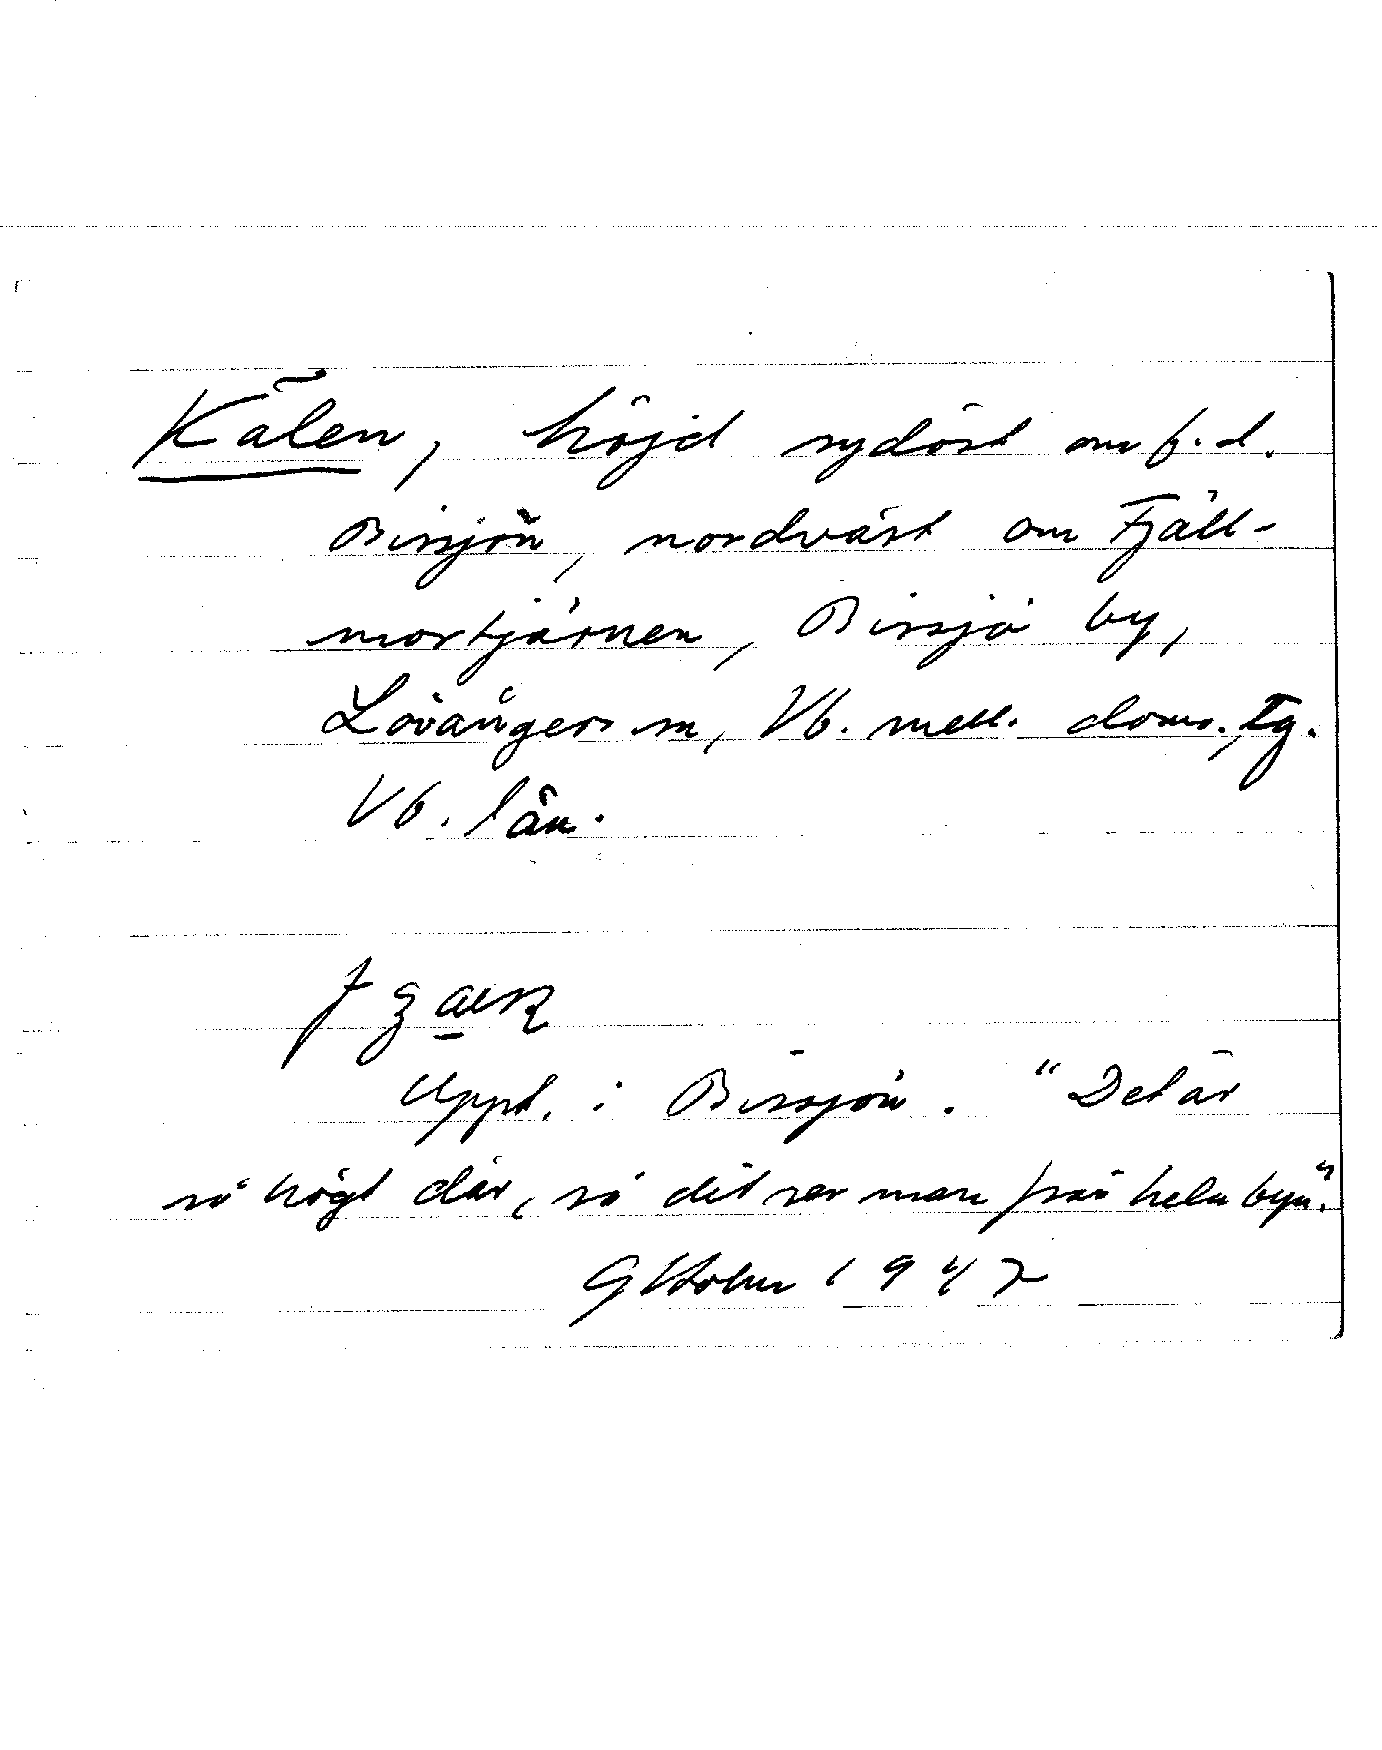 Kälen, höjd sydöst om f.d.
Bissjön, nordväst om Fjäll-
mortjärnen, Bissjö by,
Lövångers sn, Vb. mell. doms. tg.
Vb. län.
Uppt. i Bissjön. "Det är
så högt där, så dit ser man från hela byn".
1942